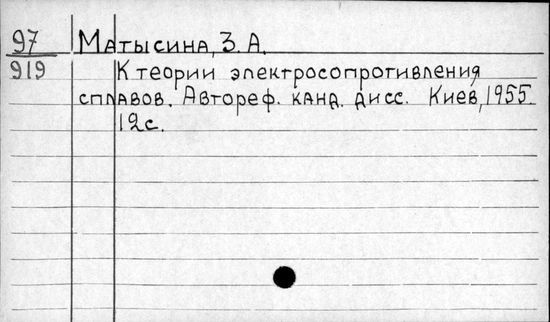 97 Матысина, З. А.
919 К теории электросопротивления
сплавов. Автореф. канд. дисс. Киев, 1955.
12с.